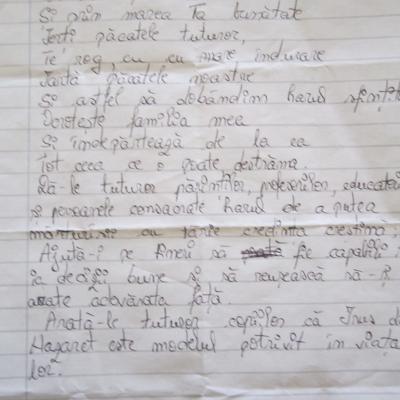 Și prin marea Ta bunătate
Ierți păcatele tuturor,
Te rog, cu cu mare îndurare
Iartă păcatele noastre
Și astfel să dobândim harul sfinț
Dorește familia mea
Și îndepărtează de la ea
Tot ceea ce o poate destrăma.
Dă-le tuturor părinților, profesorilor, educato
și persoanele consacrate harul de a putea
cu tărie credința creștină.
Ajută-i pe tineri să fie capabili
ia decizii bune și să reușească să-și
arate adevărata față.
Arată-le tuturor copiilor că Isus d
Nazaret este modelul potrivit în viața
lor.